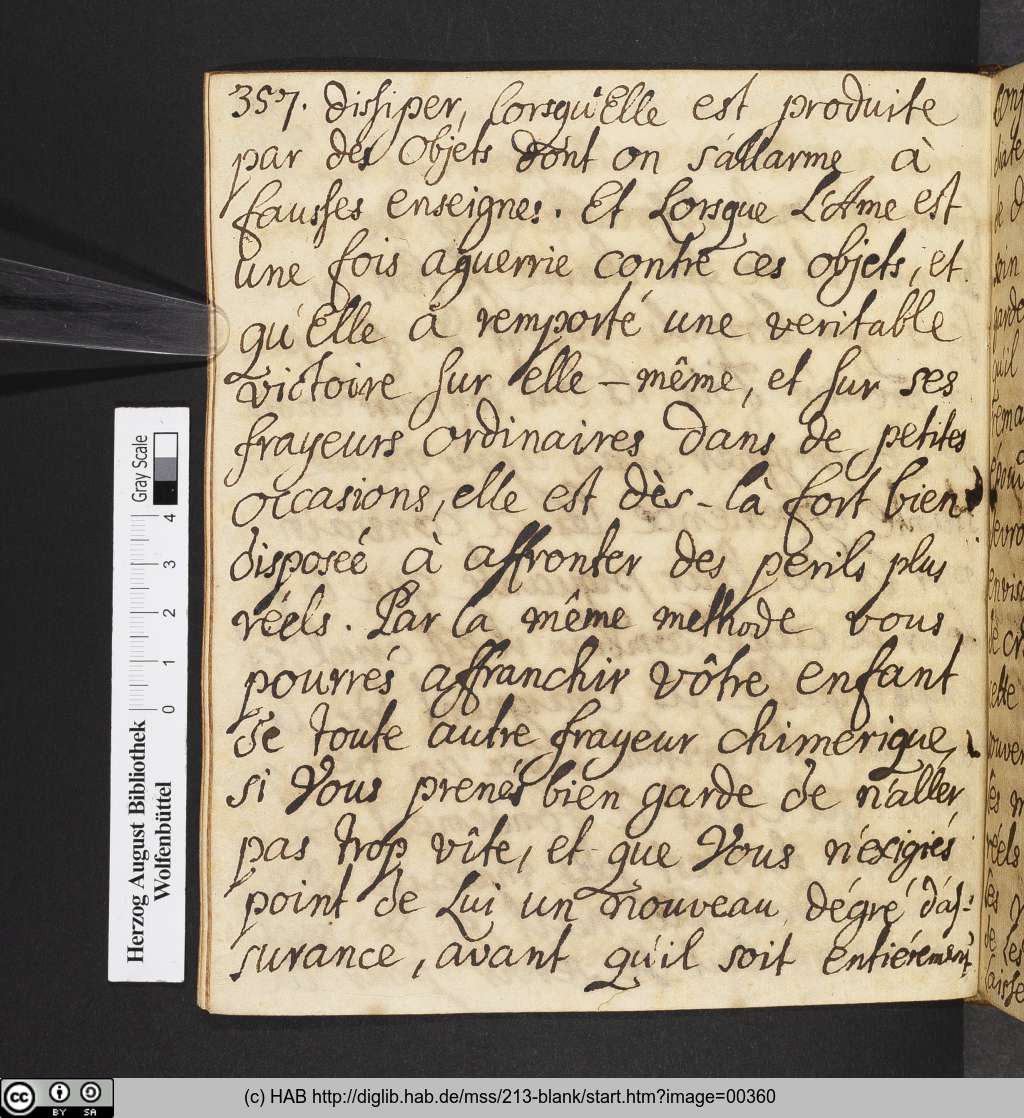 357. dissiper, lorsqu'Elle est produite
par des Objets dont on s'allarme à
fausses enseignes. Et Lorsque L'Ame est
une fois aguerrie contre ces objets, et
qu'Elle a remporté une veritable
victoire sur elle-même, et sur ses
frayeurs ordinaires dans de petites
occasions, elle est dès-là fort bien
disposée à affronter des perils plus
réels. Par la même methode vous
pourrés affranchir vôtre enfant
de toute autre frayeur chimerique,
si Vous prenés bien garde de n'aller
pas trop vîte, et que Vous n'exigiés
point de Lui un nouveau dégré d'as-
surance, avant qu'il soit entiérement
Gray Scale
4
3
2
1
0
Herzog August Bibliothek
Wolfenbüttel
cc BY SA
(c) HAB http://diglib.hab.de/mss/213-blank/start.htm?image=00360